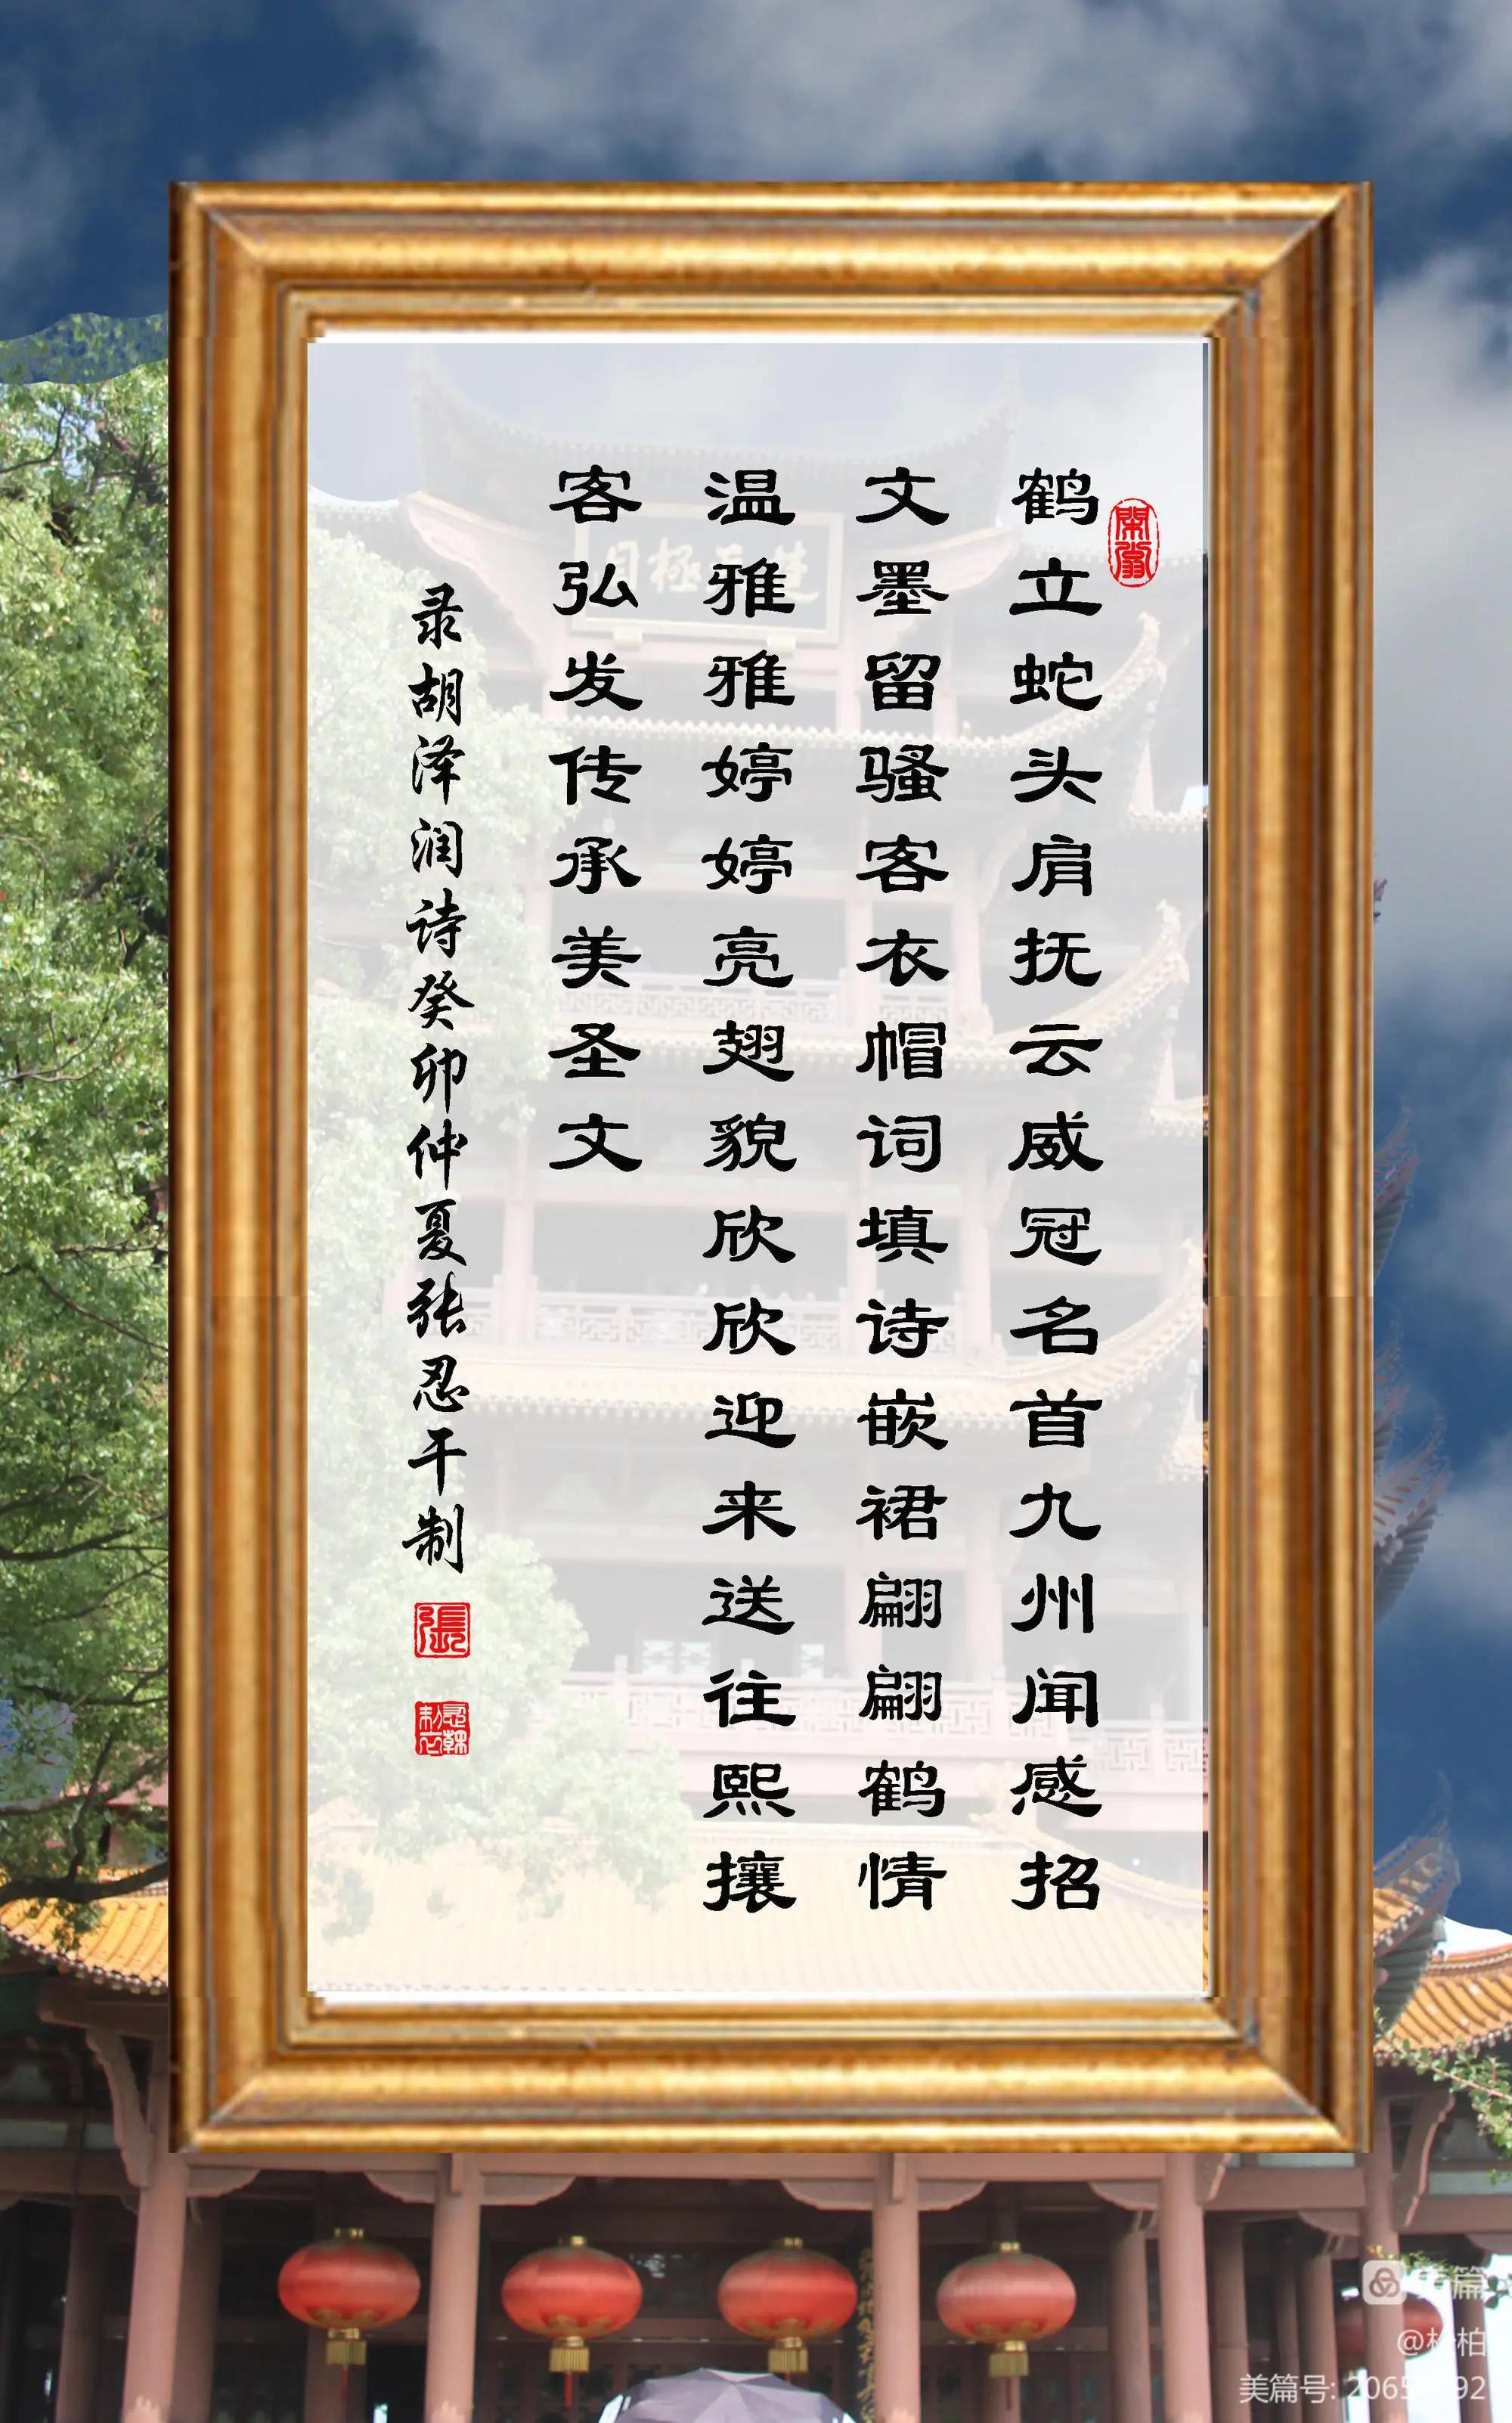 鹤立蛇头肩抚云威冠名首九州闻感招
文墨留骚客衣帽词填诗嵌裙翩翩鹤情
温雅雅婷婷亮翅貌欣欣迎来送往熙攘
客弘发传承美圣文
录胡泽润诗癸卯仲夏张忍干制
張
楚天極目
美篇
柏
美篇号: 2065 92